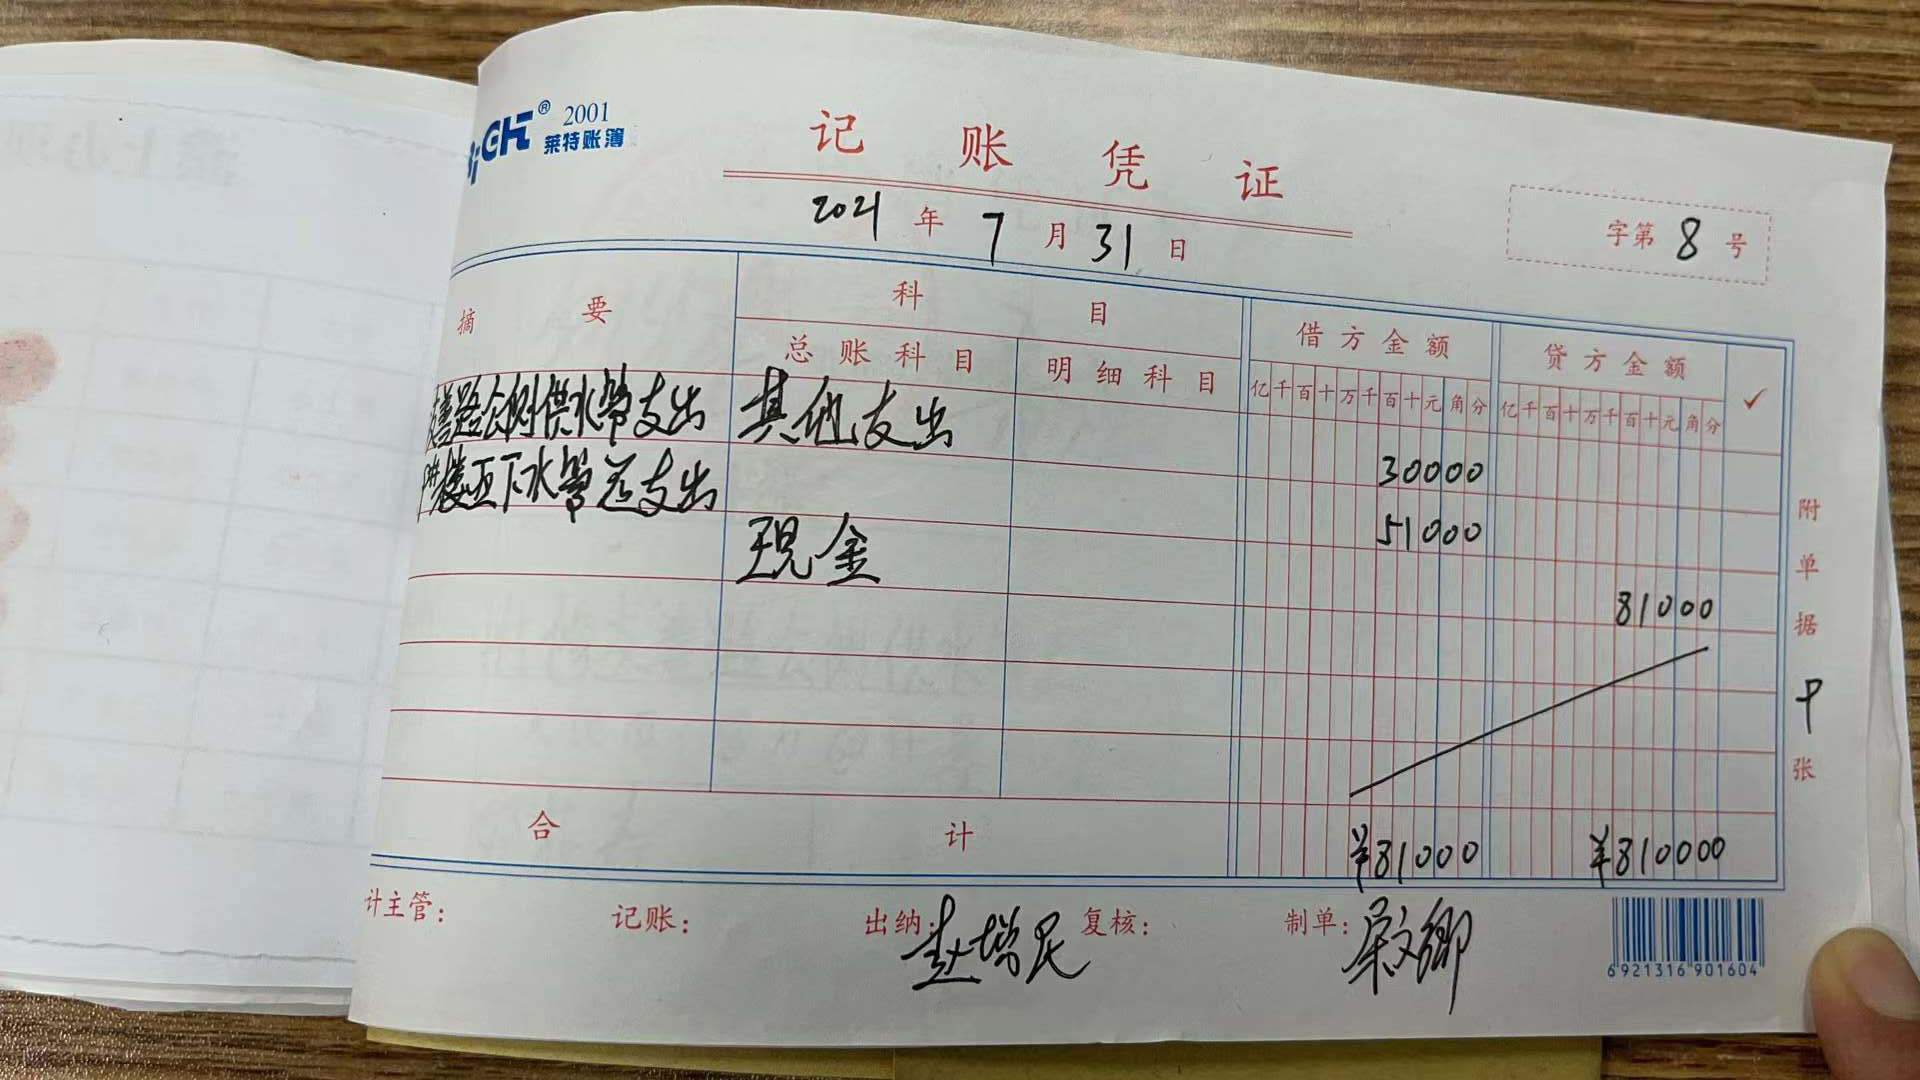 ® 2001
莱特账簿
记账凭证
2021年7月31日
字第8号
摘要
科目
借方金额
贷方金额
✓
总账科目
明细科目
亿千百十万千百十元角分
亿千百十万千百十元角分
善路公侧供水管支出
其他支出
30000
楼五下水管道支出
51000
现金
81000
附单据
张
合计
¥81000
¥810000
计主管:
记账:
出纳:赵增民
复核:
制单:
6921316901604